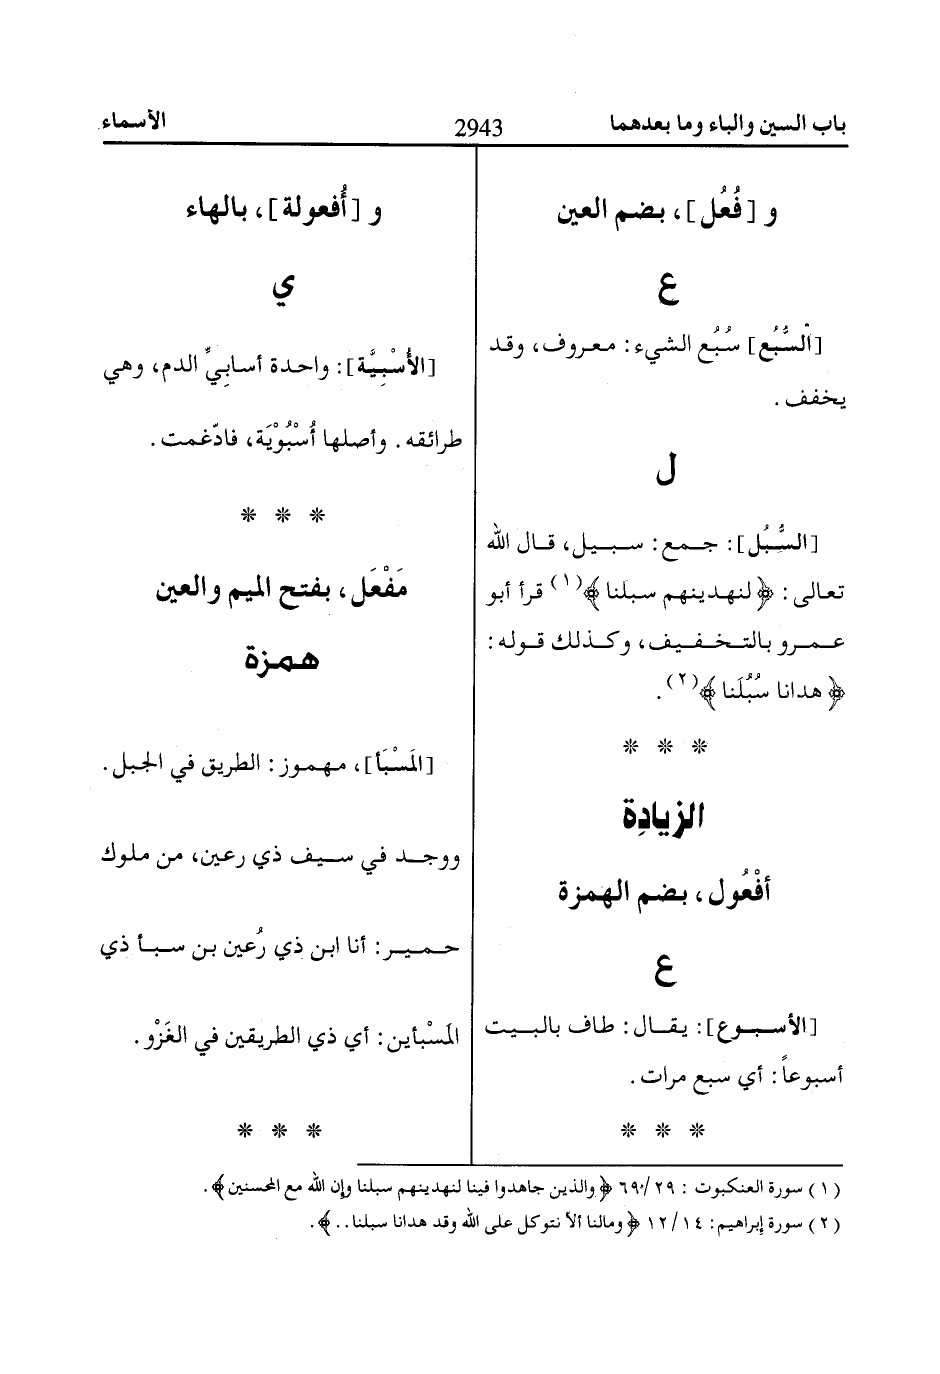 باب السين والباء وما بعدهما
2943
الأسماء
و [فُعُل]، بضم العين
ع
[السُّبُع] سُبُع الشيء: معروف، وقد
يخفف.
ل
[السُّبُل]: جمع: سبيل، قال الله
تعالى: ﴿لنهدينهم سبلنا﴾(١) قرأ أبو
عمرو بالتخفيف، وكذلك قوله:
﴿هدانا سُبُلَنا﴾(٢).
* * *
الزيادِة
أفْعُول، بضم الهمزة
ع
[الأسبوع]: يقال: طاف بالبيت
أسبوعاً: أي سبع مرات.
* * *
و [أُفعولة]، بالهاء
ي
[الأُسْبِيَّة]: واحدة أسابيِّ الدم، وهي
طرائقه. وأصلها أُسْبُوْيَة، فادّغمت.
* * *
مَفْعَل، بفتح الميم والعين
همزة
[المَسْبَأ]، مهموز: الطريق في الجبل.
ووجد في سيف ذي رعين، من ملوك
حمير: أنا ابن ذي رُعين بن سبأ ذي
المَسْبأين: أي ذي الطريقين في الغَزْو.
* * *
(١) سورة العنكبوت: ٦٩/٢٩ ﴿والذين جاهدوا فينا لنهدينهم سبلنا وإن الله مع المحسنين﴾.
(٢) سورة إبراهيم: ١٢/١٤ ﴿ومالنا ألاّ نتوكل على الله وقد هدانا سبلنا..﴾.